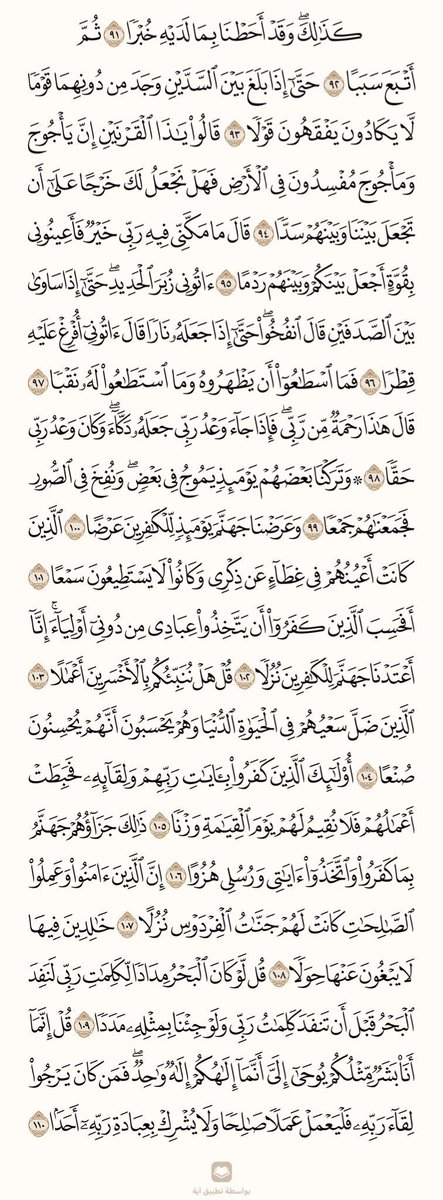 كَذَٰلِكَۖ وَقَدۡ أَحَطۡنَا بِمَا لَدَيۡهِ خُبۡرٗا ٩١ ثُمَّ
أَتۡبَعَ سَبَبًا ٩٢ حَتَّىٰٓ إِذَا بَلَغَ بَيۡنَ ٱلسَّدَّيۡنِ وَجَدَ مِن دُونِهِمَا قَوۡمٗا
لَّا يَكَادُونَ يَفۡقَهُونَ قَوۡلٗا ٩٣ قَالُواْ يَٰذَا ٱلۡقَرۡنَيۡنِ إِنَّ يَأۡجُوجَ
وَمَأۡجُوجَ مُفۡسِدُونَ فِي ٱلۡأَرۡضِ فَهَلۡ نَجۡعَلُ لَكَ خَرۡجًا عَلَىٰٓ أَن
تَجۡعَلَ بَيۡنَنَا وَبَيۡنَهُمۡ سَدّٗا ٩٤ قَالَ مَا مَكَّنِّي فِيهِ رَبِّي خَيۡرٞ فَأَعِينُونِي
بِقُوَّةٍ أَجۡعَلۡ بَيۡنَكُمۡ وَبَيۡنَهُمۡ رَدۡمًا ٩٥ ءَاتُونِي زُبَرَ ٱلۡحَدِيدِۖ حَتَّىٰٓ إِذَا سَاوَىٰ
بَيۡنَ ٱلصَّدَفَيۡنِ قَالَ ٱنفُخُواْۖ حَتَّىٰٓ إِذَا جَعَلَهُۥ نَارٗا قَالَ ءَاتُونِيٓ أُفۡرِغۡ عَلَيۡهِ
قِطۡرٗا ٩٦ فَمَا ٱسۡطَٰعُوٓاْ أَن يَظۡهَرُوهُ وَمَا ٱسۡتَطَٰعُواْ لَهُۥ نَقۡبٗا ٩٧
قَالَ هَٰذَا رَحۡمَةٞ مِّن رَّبِّيۖ فَإِذَا جَآءَ وَعۡدُ رَبِّي جَعَلَهُۥ دَكَّآءَۖ وَكَانَ وَعۡدُ رَبِّي
حَقّٗا ٩٨ ۞ وَتَرَكۡنَا بَعۡضَهُمۡ يَوۡمَئِذٖ يَمُوجُ فِي بَعۡضٖۖ وَنُفِخَ فِي ٱلصُّورِ
فَجَمَعۡنَٰهُمۡ جَمۡعٗا ٩٩ وَعَرَضۡنَا جَهَنَّمَ يَوۡمَئِذٖ لِّلۡكَٰفِرِينَ عَرۡضًا ١٠٠ ٱلَّذِينَ
كَانَتۡ أَعۡيُنُهُمۡ فِي غِطَآءٍ عَن ذِكۡرِي وَكَانُواْ لَا يَسۡتَطِيعُونَ سَمۡعًا ١٠١
أَفَحَسِبَ ٱلَّذِينَ كَفَرُوٓاْ أَن يَتَّخِذُواْ عِبَادِي مِن دُونِيٓ أَوۡلِيَآءَۚ إِنَّآ
أَعۡتَدۡنَا جَهَنَّمَ لِلۡكَٰفِرِينَ نُزُلٗا ١٠٢ قُلۡ هَلۡ نُنَبِّئُكُم بِٱلۡأَخۡسَرِينَ أَعۡمَٰلًا ١٠٣
ٱلَّذِينَ ضَلَّ سَعۡيُهُمۡ فِي ٱلۡحَيَوٰةِ ٱلدُّنۡيَا وَهُمۡ يَحۡسَبُونَ أَنَّهُمۡ يُحۡسِنُونَ
صُنۡعًا ١٠٤ أُوْلَٰٓئِكَ ٱلَّذِينَ كَفَرُواْ بِـَٔايَٰتِ رَبِّهِمۡ وَلِقَآئِهِۦ فَحَبِطَتۡ
أَعۡمَٰلُهُمۡ فَلَا نُقِيمُ لَهُمۡ يَوۡمَ ٱلۡقِيَٰمَةِ وَزۡنٗا ١٠٥ ذَٰلِكَ جَزَآؤُهُمۡ جَهَنَّمُ
بِمَا كَفَرُواْ وَٱتَّخَذُوٓاْ ءَايَٰتِي وَرُسُلِي هُزُوًا ١٠٦ إِنَّ ٱلَّذِينَ ءَامَنُواْ وَعَمِلُواْ
ٱلصَّٰلِحَٰتِ كَانَتۡ لَهُمۡ جَنَّٰتُ ٱلۡفِرۡدَوۡسِ نُزُلًا ١٠٧ خَٰلِدِينَ فِيهَا
لَا يَبۡغُونَ عَنۡهَا حِوَلٗا ١٠٨ قُل لَّوۡ كَانَ ٱلۡبَحۡرُ مِدَادٗا لِّكَلِمَٰتِ رَبِّي لَنَفِدَ
ٱلۡبَحۡرُ قَبۡلَ أَن تَنفَدَ كَلِمَٰتُ رَبِّي وَلَوۡ جِئۡنَا بِمِثۡلِهِۦ مَدَدٗا ١٠٩ قُلۡ إِنَّمَآ
أَنَا۠ بَشَرٞ مِّثۡلُكُمۡ يُوحَىٰٓ إِلَيَّ أَنَّمَآ إِلَٰهُكُمۡ إِلَٰهٞ وَٰحِدٞۖ فَمَن كَانَ يَرۡجُواْ
لِقَآءَ رَبِّهِۦ فَلۡيَعۡمَلۡ عَمَلٗا صَٰلِحٗا وَلَا يُشۡرِكۡ بِعِبَادَةِ رَبِّهِۦٓ أَحَدَۢا ١١٠
بواسطة تطبيق آية